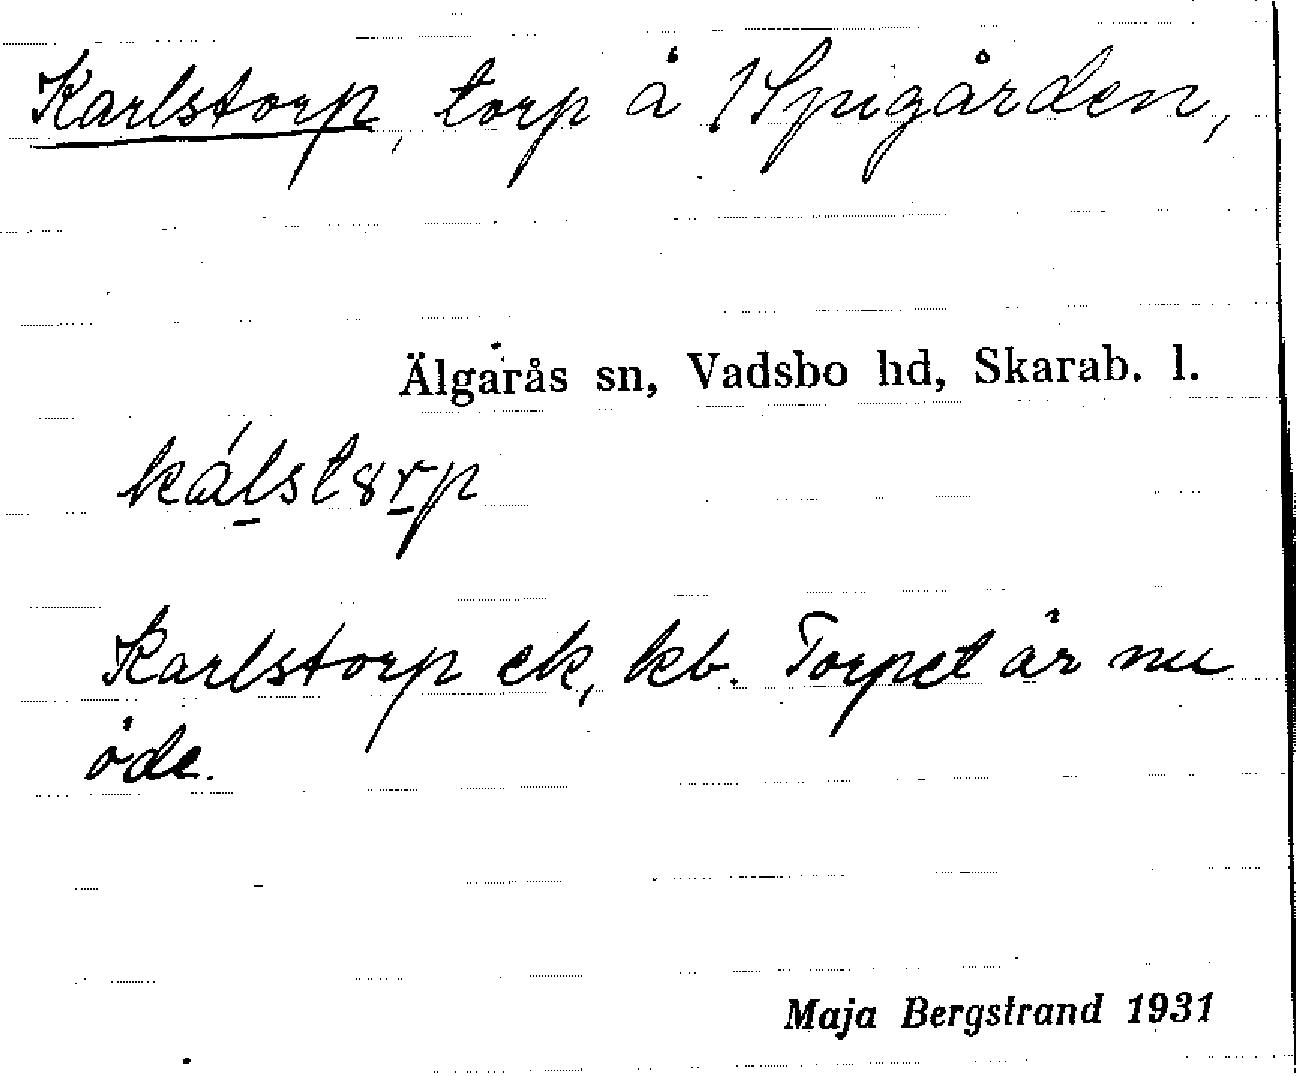 Karlstorp, torp å Spigården,
Älgarås sn, Vadsbo hd, Skarab. l.
kálst8rp
Karlstorp ek, kb. Torpet är nu
öde.
Maja Bergstrand 1931